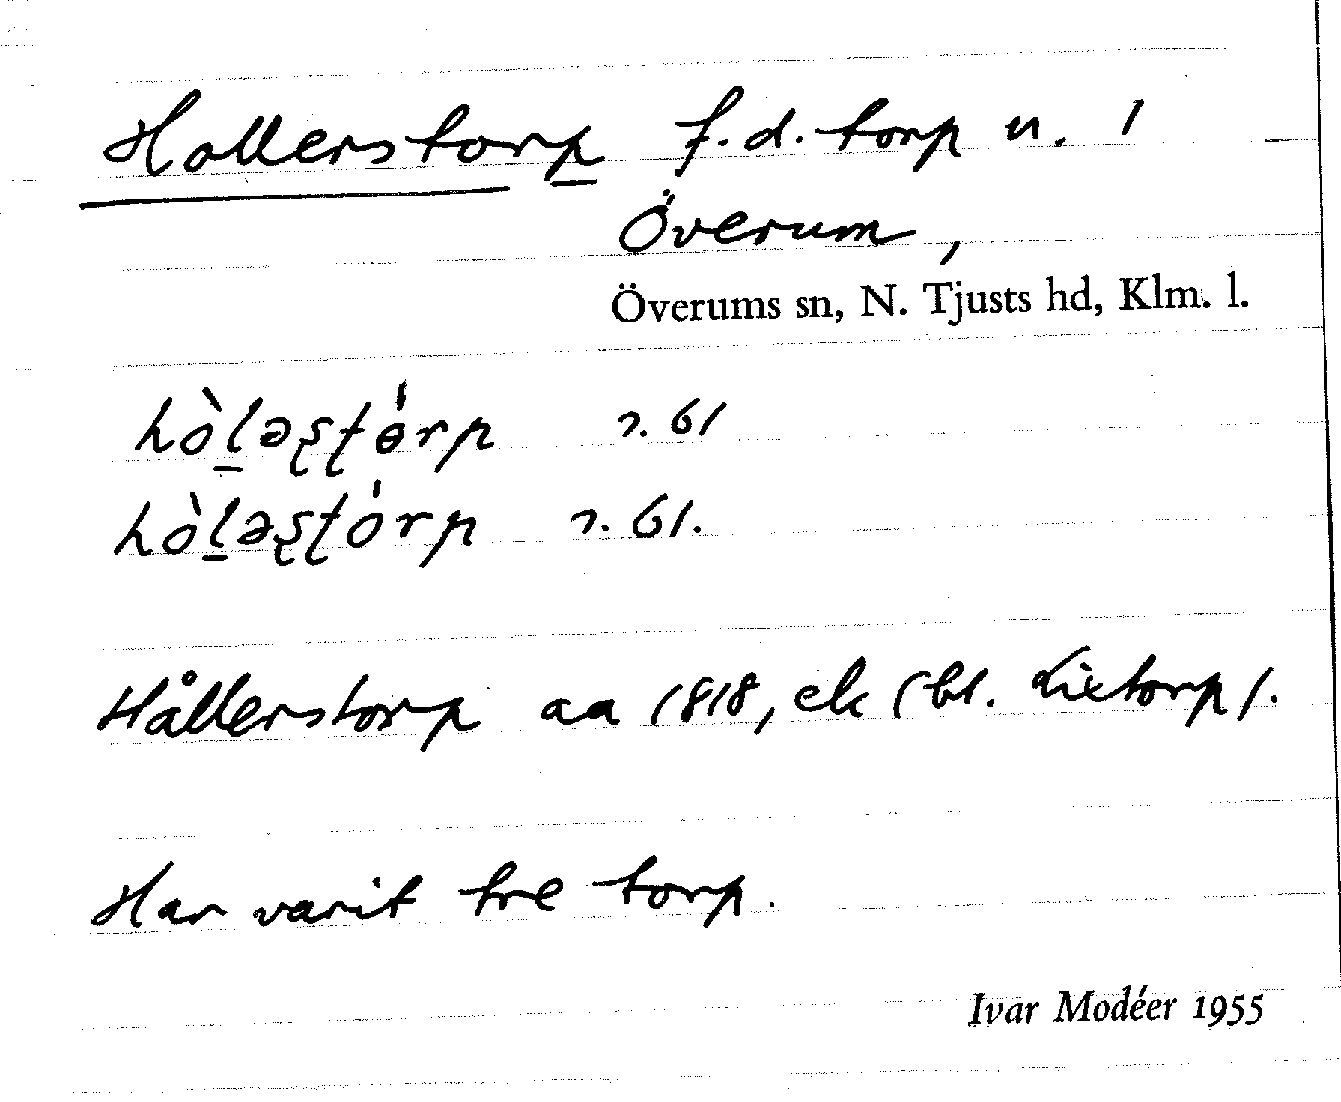 Hollerstorp f.d. torp u. 1
Överum,
Överums sn, N. Tjusts hd, Klm. l.
hòl̲əʂʈɵ́rp 61
hòl̲əʂʈórp 61.
Hållerstorp aa 1818, ek (bl. Lietorp).
Har varit tre torp.
Ivar Modéer 1955